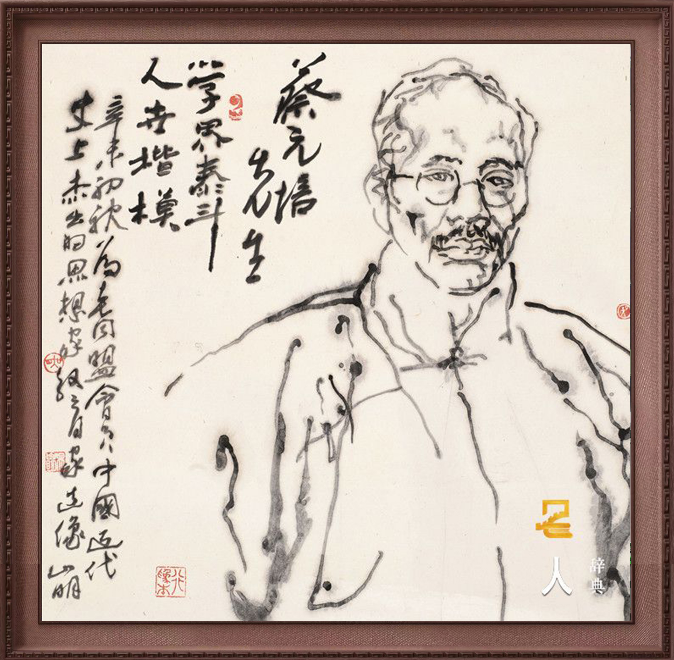 蔡元培
先生
学界泰斗
人世楷模
辛未初秋为老同盟会员中国近代
史上杰出的思想家教育家造像 山明
名
人
辞典